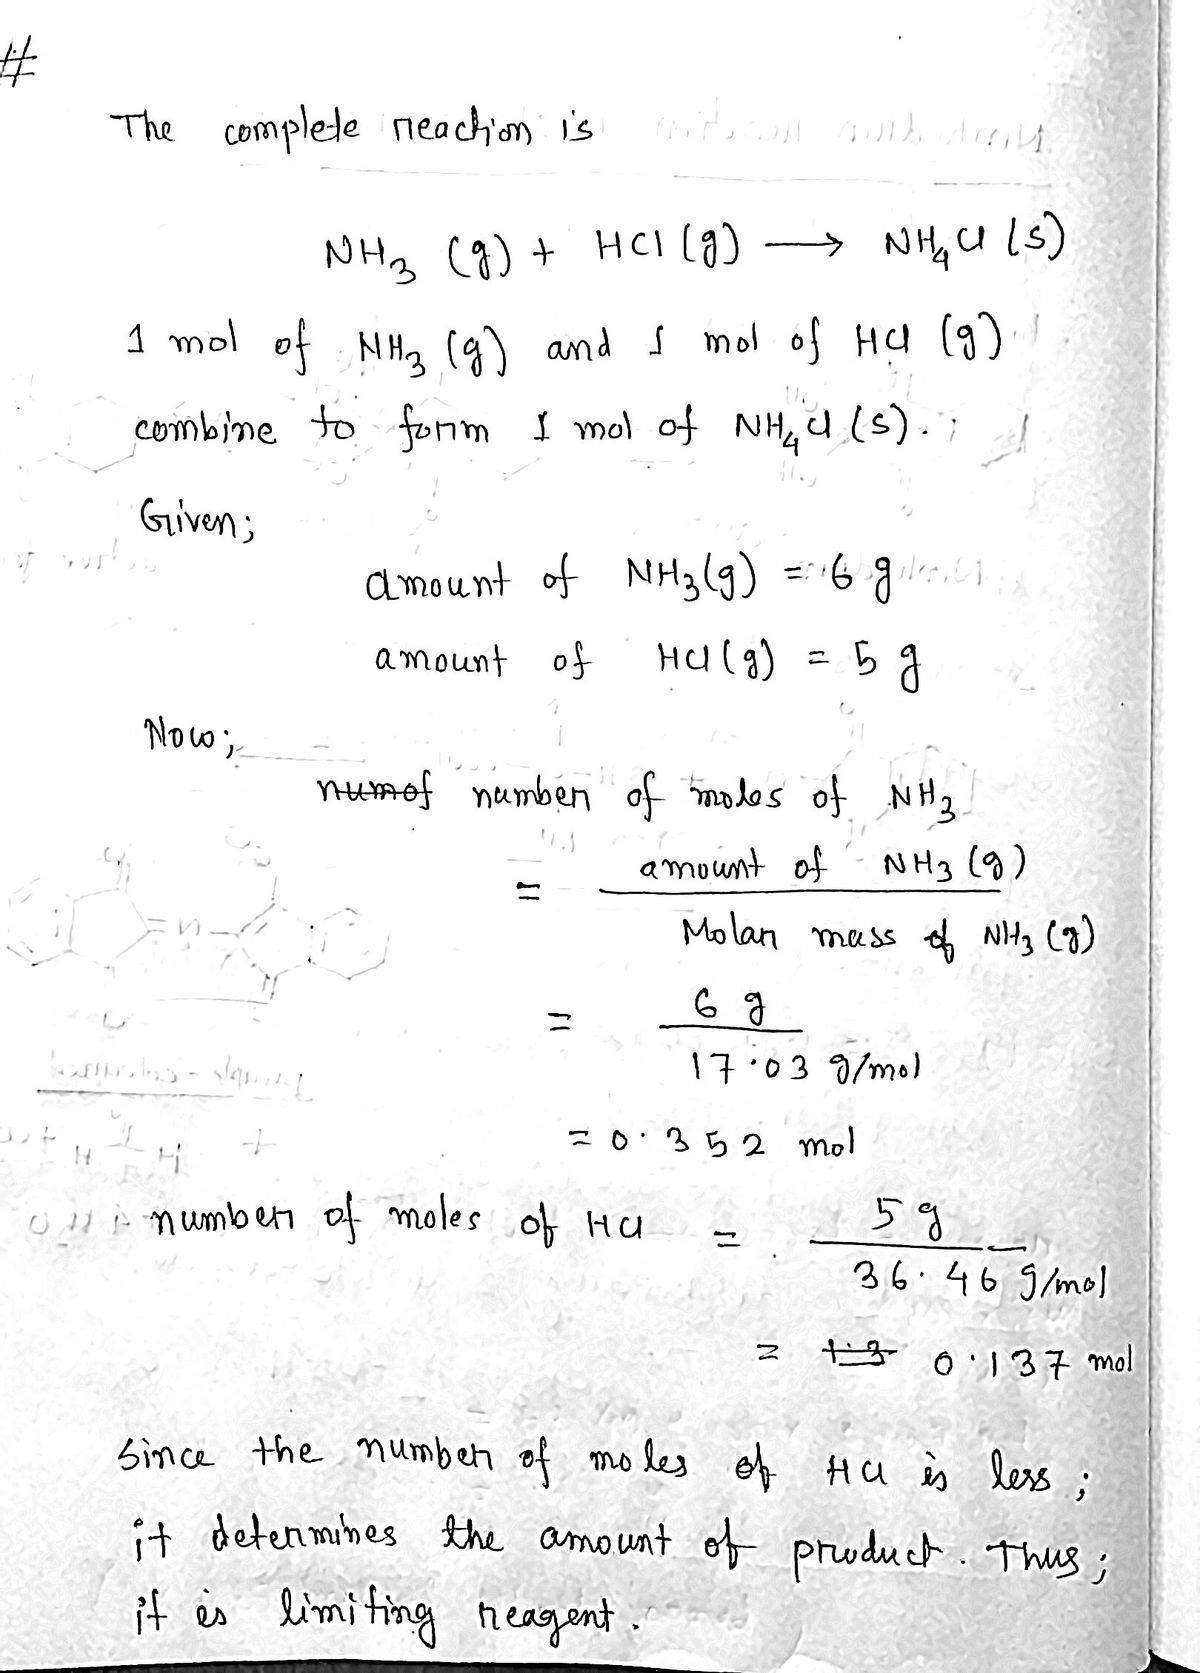 #
The complete reaction is
NH3 (g) + HCl (g) ⟶ NH4Cl (s)
1 mol of NH3 (g) and 1 mol of HCl (g)
combine to form 1 mol of NH4Cl (s).
Given;
amount of NH3(g) = 6 g
amount of HCl (g) = 5 g
Now;
numof number of moles of NH3
= amount of NH3 (g)
Molar mass of NH3 (g)
= 6 g
17.03 g/mol
= 0.352 mol
number of moles of HCl = 5 g
36.46 g/mol
= 1.3 0.137 mol
Since the number of moles of HCl is less ;
it determines the amount of product. Thus ;
it is limiting reagent.